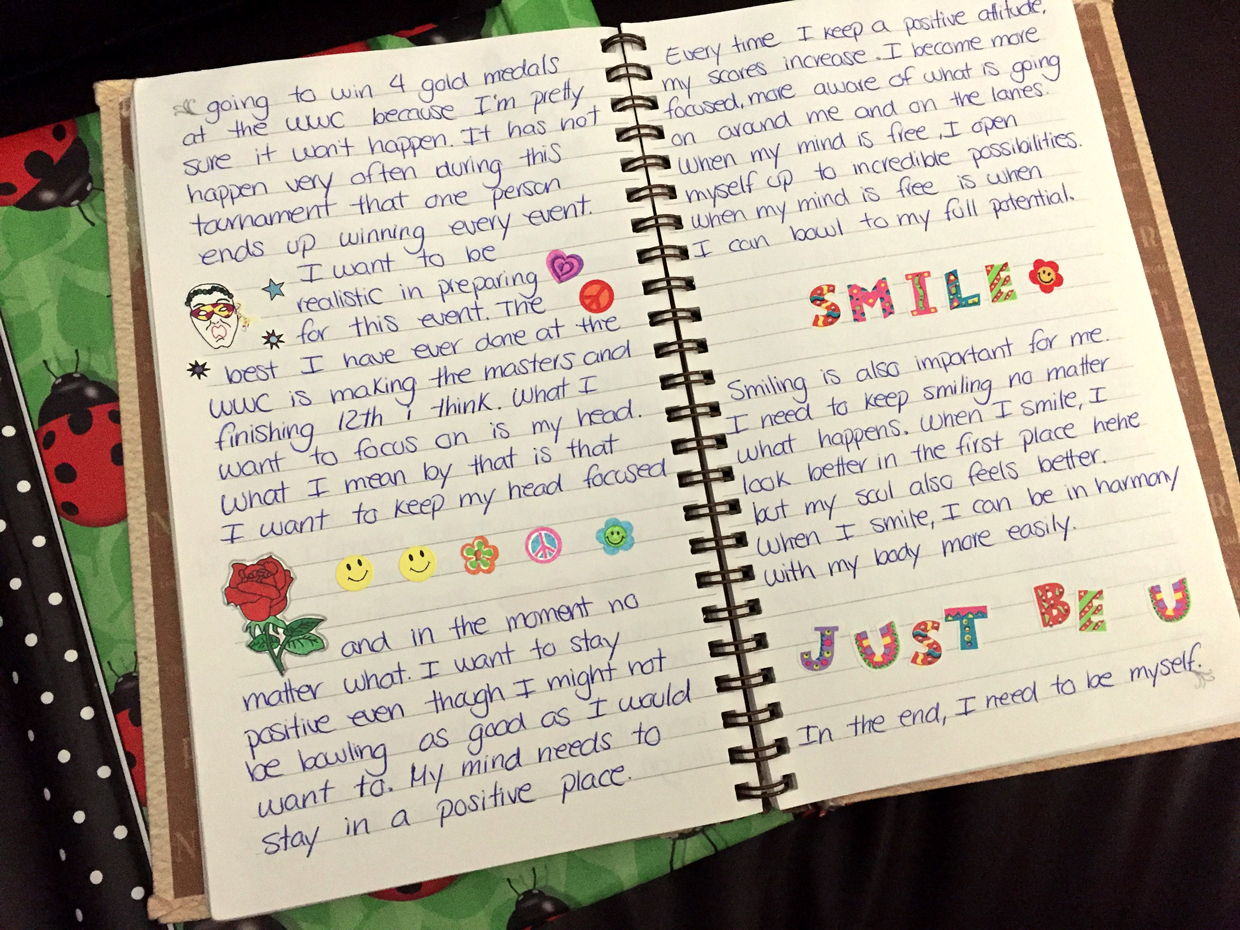 going to win 4 gold medals
at the WWC because I'm pretty
sure it won't happen. It has not
happen very often during this
tournament that one person
ends up winning every event.
I want to be
realistic in preparing
for this event. The
best I have ever done at the
WWC is making the masters and
finishing 12th i think. What I
want to focus on is my head.
What I mean by that is that
I want to keep my head focused
and in the moment no
matter what. I want to stay
positive even though I might not
be bowling as good as I would
want to. My mind needs to
stay in a positive place.
Every time I keep a positive attitude,
my scores increase. I become more
focused, more aware of what is going
on around me and on the lanes.
When my mind is free, I open
myself up to incredible possibilities.
When my mind is free is when
I can bowl to my full potential.
SMILE
Smiling is also important for me.
I need to keep smiling no matter
what happens. When I smile, I
look better in the first place hehe
but my soul also feels better.
When I smile, I can be in harmony
with my body more easily.
JUST BE U
In the end, I need to be myself.